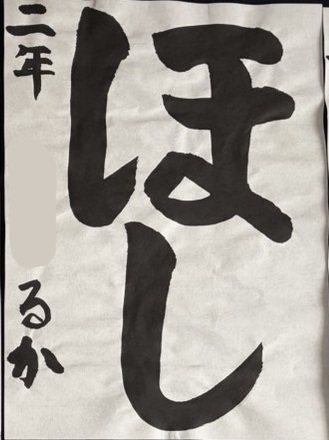 ほし
二年 るか